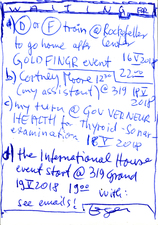 a) D or F train @ Rockefeller
to go home after Center
GOLDFINGER event 16 V 2018
b) Cortney Moore 12⁰⁰ 22⁰⁰
(my assistant) @ 319 18 V 2018
c) my turn @ GOUVERNEUR
HEALTH for Thyroid-Sonar
examination 18 V 2018
d) the International House
event start @ 319 Grand
19 V 2018 19⁰⁰ with:
see emails!